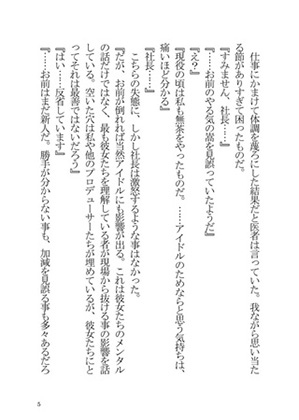 仕事にかまけて体調を蔑ろにした結果だと医者は言っていた。我ながら思い当た
る節がありすぎて困ったものだ。
『すみません、社長……』
『……お前のやる気の嵩を見誤っていたようだ』
『え？』
『現役の頃は私も無茶をやったものだ。……アイドルのためならと思う気持ちは、
痛いほど分かる』
『社長……』
こちらの失態に、しかし社長は激怒するような事はなかった。
『だが、お前が倒れれば当然アイドルにも影響が出る。これは彼女たちのメンタル
の話だけではなく、最も彼女たちを理解している者が現場から抜ける事の影響を話
している。空いた穴は私や他のプロデューサーたちが埋めているが、彼女たちにと
ってそれは最善ではないだろう』
『はい……反省しています』
『……お前はまだ新人だ。勝手が分からない事も、加減を見誤る事も多々あるだろ
5